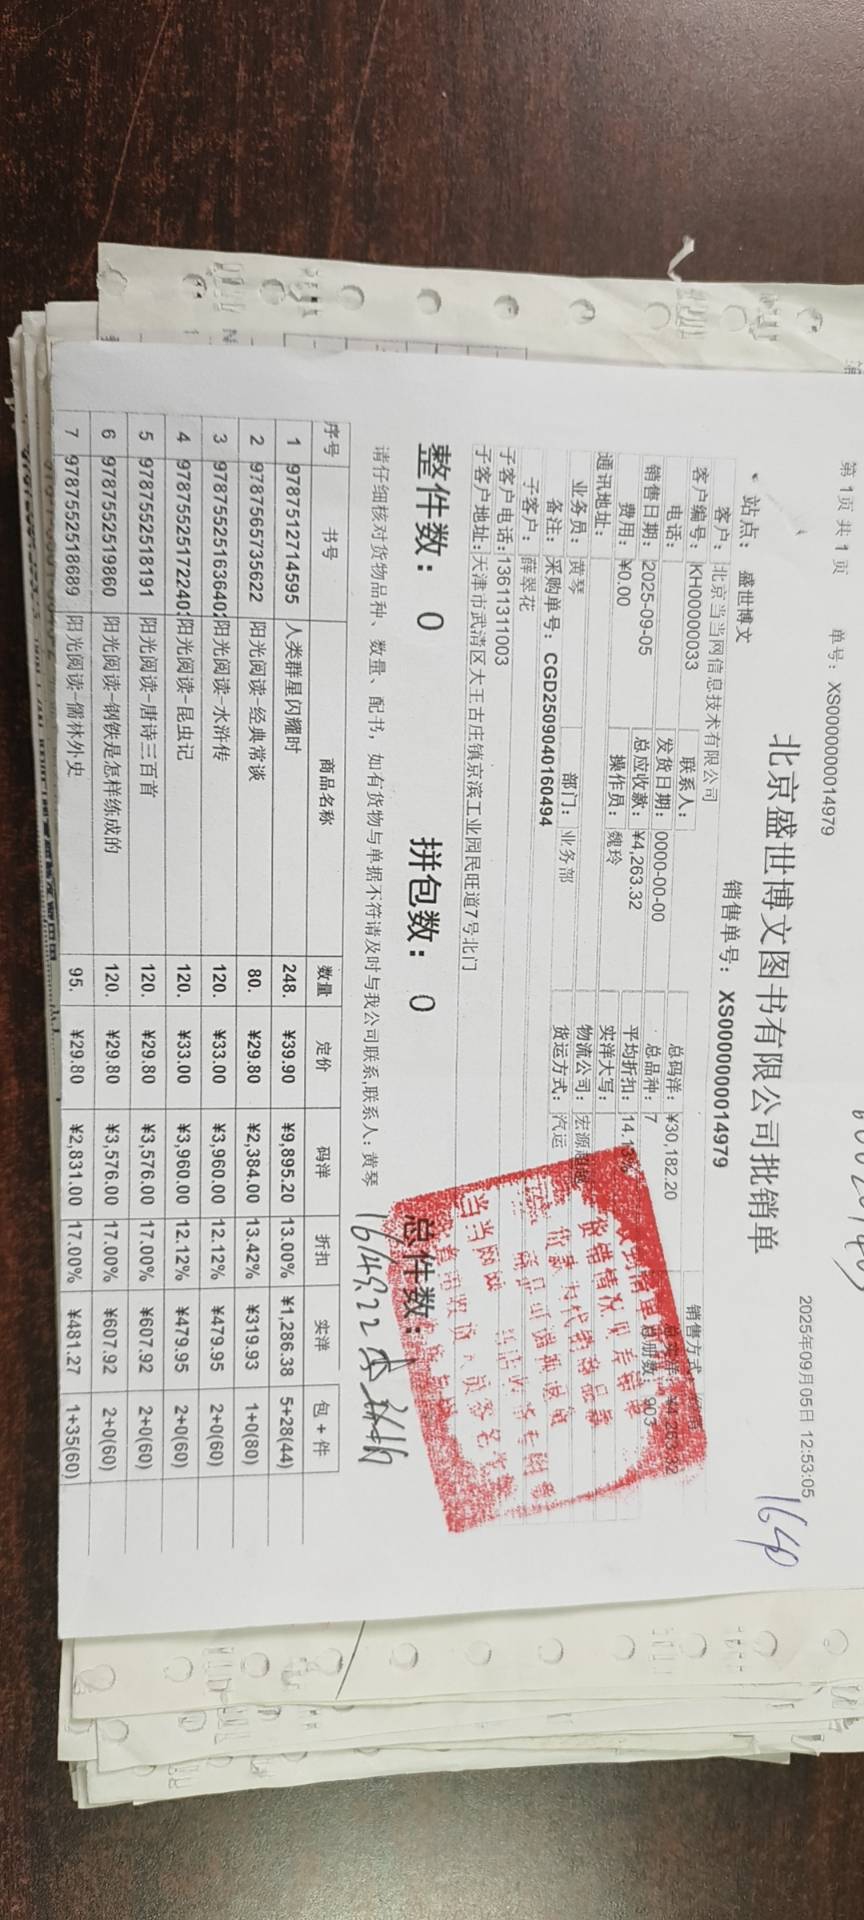 第 1页 共 1 页 单号: XS0000000014979
北京盛世博文图书有限公司批销单
2025年09月05日 12:53:05
164p
站点: 盛世博文
销售单号: XS0000000014979
客户: 北京当当网信息技术有限公司
销售方式:
客户编号: KH00000033 联系人: 总码洋: ¥30,182.20 ¥4,263.32
电话: 发货日期: 0000-00-00 总品种: 7 总册数: 903
销售日期: 2025-09-05 总应收款: ¥4,263.32 平均折扣: 14.13%
费用: ¥0.00 操作员: 魏玲 实洋大写:
通讯地址: 物流公司: 宏源
业务员: 黄琴 部门: 业务部 货运方式: 汽运
备注: 采购单号: CGD2509040160494
子客户: 薛翠花
子客户电话: 13611311003
子客户地址: 天津市武清区大王古庄镇京滨工业园民旺道7号北门
整件数: 0 拼包数: 0 总件数:
请仔细核对货物品种、数量、配书, 如有货物与单据不符请及时与我公司联系,联系人: 黄琴
序号 书号 商品名称 数量 定价 码洋 折扣 实洋 包+件
1 9787512714595 人类群星闪耀时 248. ¥39.90 ¥9,895.20 13.00% ¥1,286.38 5+28(44)
2 9787565735622 阳光阅读-经典常谈 80. ¥29.80 ¥2,384.00 13.42% ¥319.93 1+0(80)
3 978755251636402 阳光阅读-水浒传 120. ¥33.00 ¥3,960.00 12.12% ¥479.95 2+0(60)
4 978755251722401 阳光阅读-昆虫记 120. ¥33.00 ¥3,960.00 12.12% ¥479.95 2+0(60)
5 9787552518191 阳光阅读-唐诗三百首 120. ¥29.80 ¥3,576.00 17.00% ¥607.92 2+0(60)
6 9787552519860 阳光阅读-钢铁是怎样练成的 120. ¥29.80 ¥3,576.00 17.00% ¥607.92 2+0(60)
7 9787552518689 阳光阅读-儒林外史 95. ¥29.80 ¥2,831.00 17.00% ¥481.27 1+35(60)